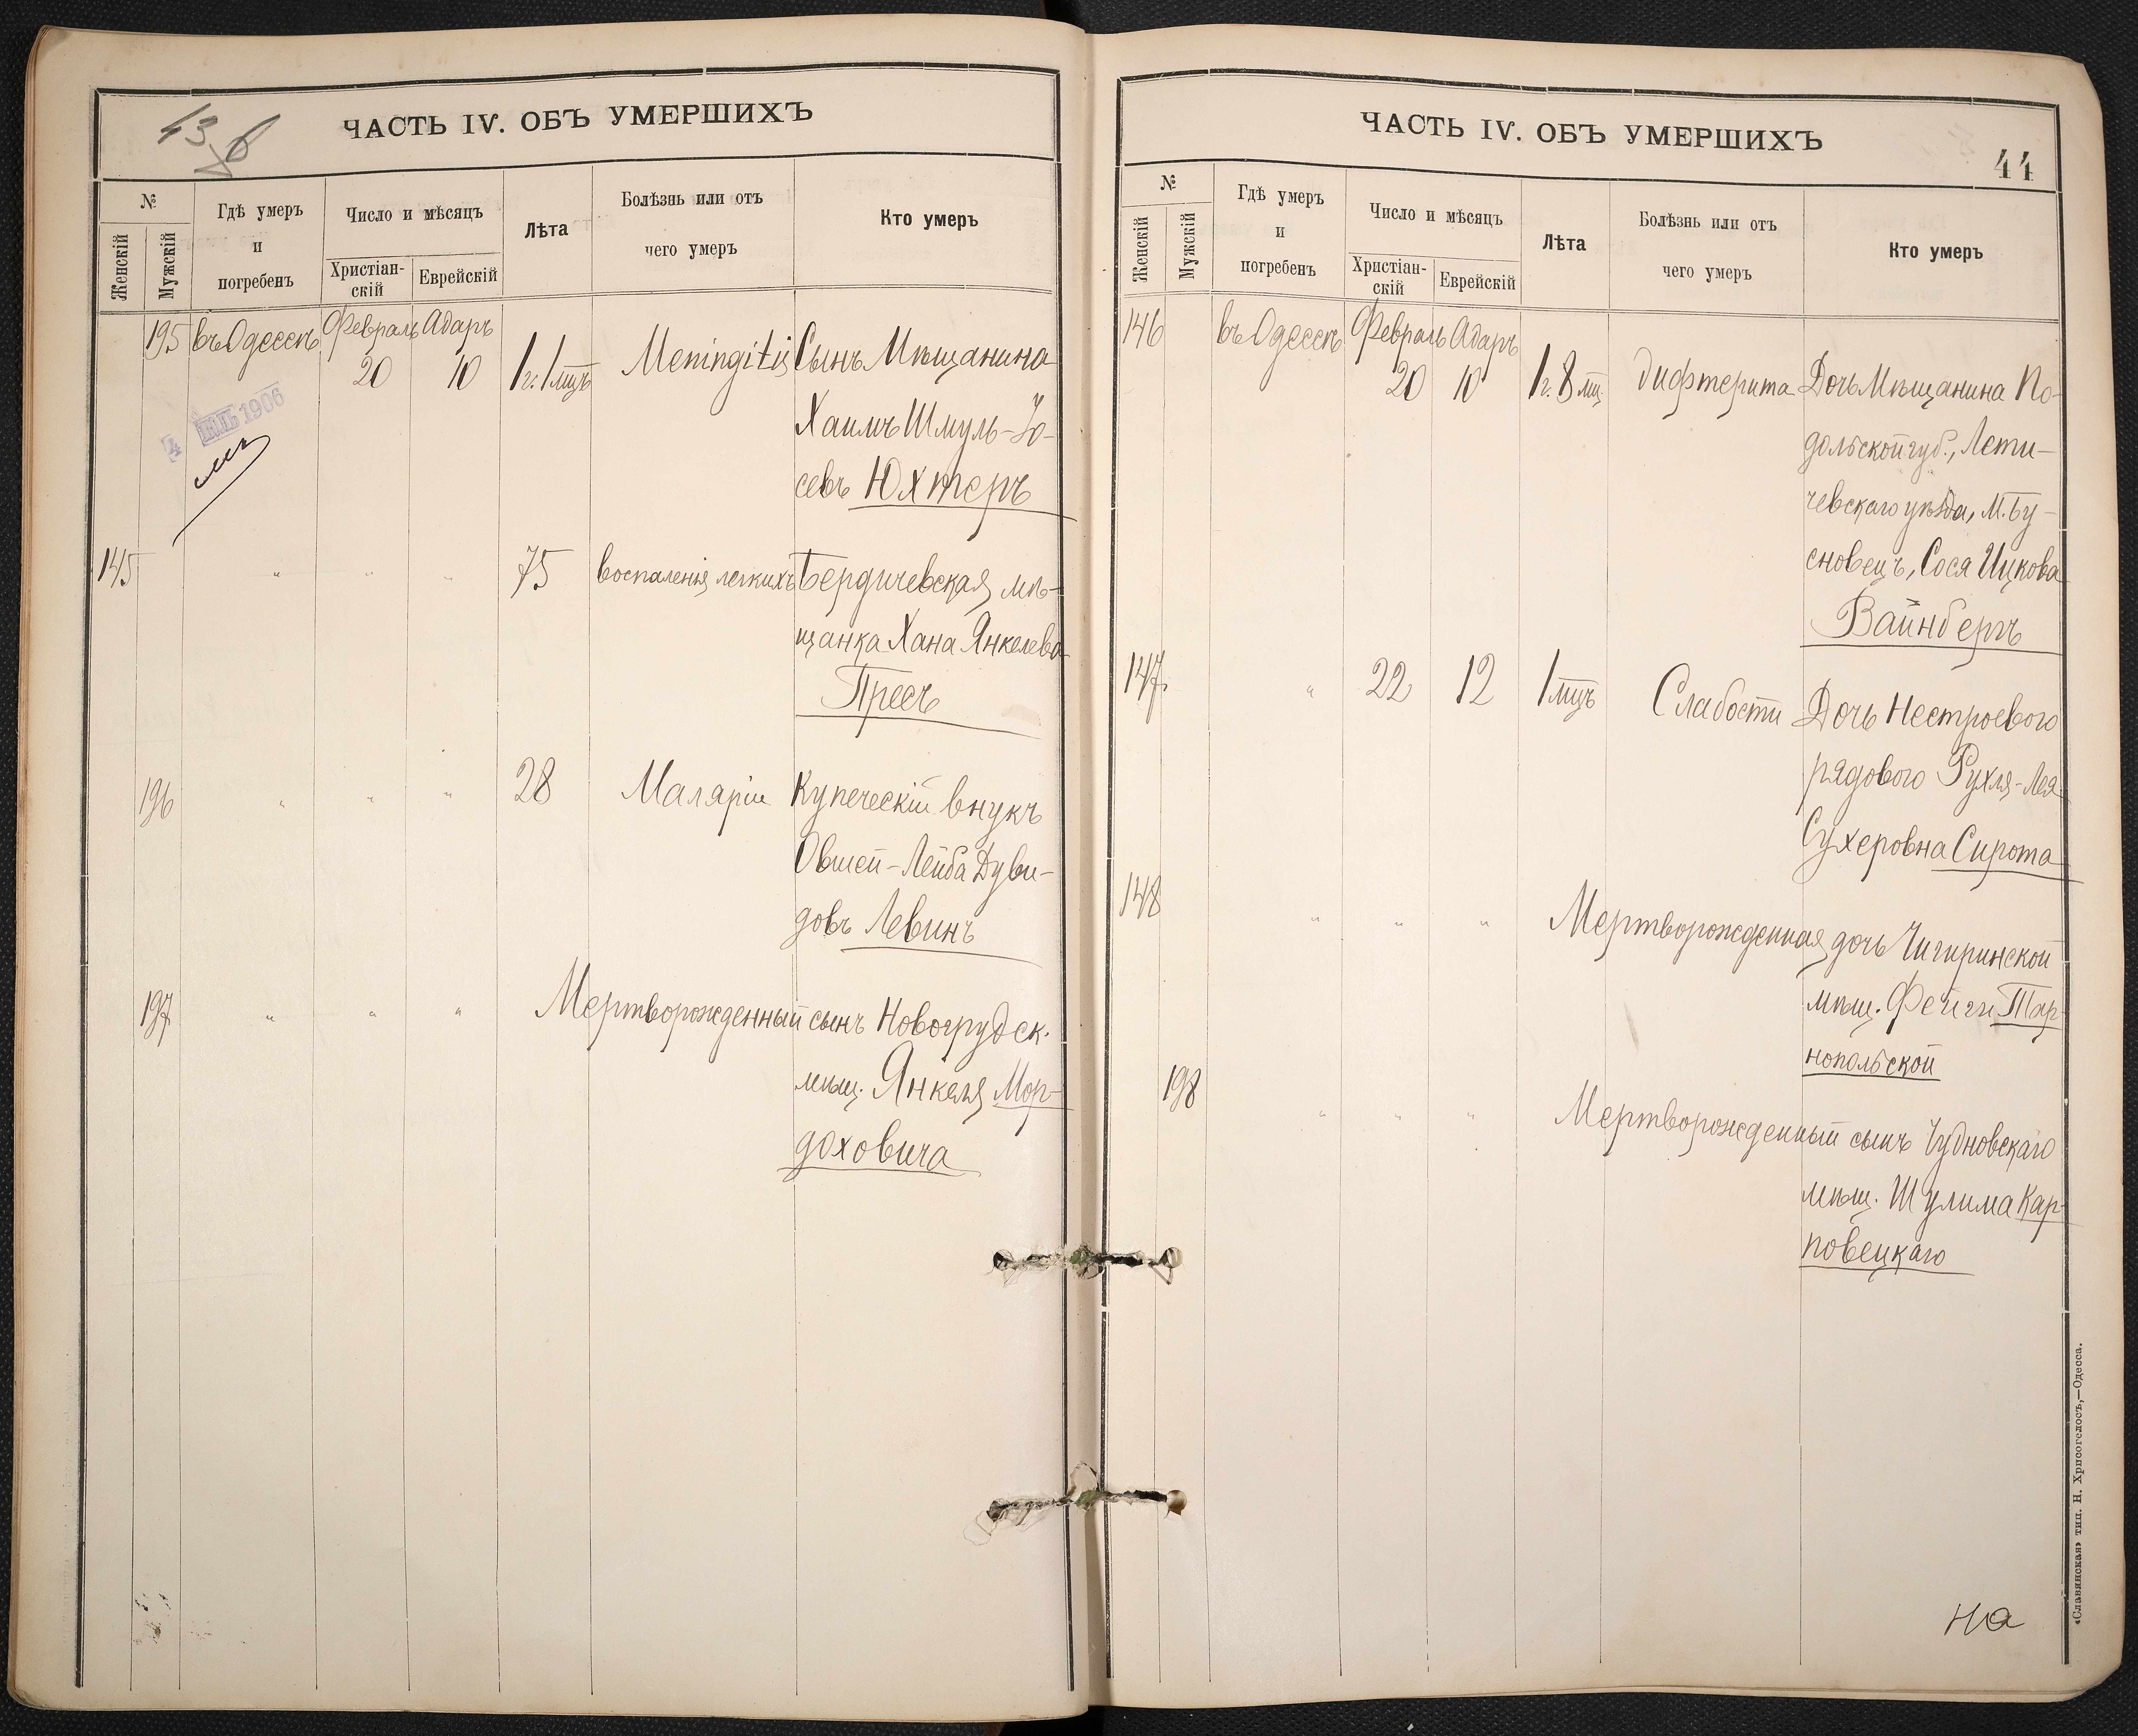 43 б
ЧАСТЬ IV. ОБЪ УМЕРШИХЪ
№
Женскій
Мужскій
Гдѣ умеръ
и
погребенъ
Число и мѣсяцъ
Христіан-
скій
Еврейскій
Лѣта
Болѣзнь или отъ
чего умеръ
Кто умеръ
195 въ Одессѣ Февраль Адаръ
20 10 1 г. 1 мцъ Meningitis Сынъ Мѣщанина
Хаимъ Шмуль-Іо-
севъ Юхтеръ
1906
145 " " " 75 воспаленія легкихъ Бердичевская мѣ-
щанка Хана Янкелева
Пресъ
196 " " " 28 Маляріи Купеческій внукъ
Овшей-Лейба Дуви-
довъ Левинъ
197 " " " Мертворожденный сынъ Новогрудск.
мѣщ. Янкеля Мор-
доховича
ЧАСТЬ IV. ОБЪ УМЕРШИХЪ
44
№
Женскій
Мужскій
Гдѣ умеръ
и
погребенъ
Число и мѣсяцъ
Христіан-
скій
Еврейскій
Лѣта
Болѣзнь или отъ
чего умеръ
Кто умеръ
146 въ Одессѣ Февраль Адаръ
20 10 1 г. 8 мц. дифтерита Дочь Мѣщанина По-
дольской губ., Лети-
чевскаго уѣзда, м. Бу-
сновецъ, Сося Ицкова
Вайнбергъ
147 " 22 12 1 мцъ Слабости Дочь Нестроевого
рядового Рухля-Лея
Сухеровна Сирота
148 " " " Мертворожденная дочь Чигиринской
мѣщ. Фейги Тар-
нопольской
198 " " " Мертворожденный сынъ Чудновскаго
мѣщ. Шулима Кар-
повецкаго
на
«Славянская» тип. Н. Хрисогелосъ,—Одесса.